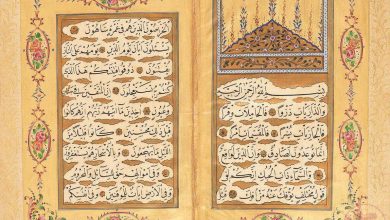 بسم الله الرحمن الرحيم
والذاريات ذروا فالحاملات وقرا
فالجاريات يسرا فالمقسمات امرا
انما توعدون لصادق وان الدين لواقع
والسماء ذات الحبك انكم لفي
قول مختلف يؤفك عنه من افك قتل
الخراصون الذين هم في غمرة ساهون
يسئلون ايان يوم الدين يوم هم على النار
يفتنون ذوقوا فتنتكم هذا الذي
كنتم به تستعجلون ان المتقين في جنات
وعيون اخذين ما اتيهم ربهم انهم كانوا
قبل ذلك محسنين كانوا قليلا
من الليل ما يهجعون وبالاسحار هم يستغفرون
وفي الارض ايات للموقنين وفي انفسكم